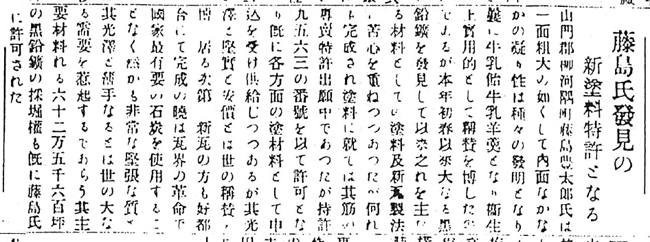 藤島氏發見の
新塗料特許となる
山門郡柳河隅町藤島豊太郎氏は
一面粗大の如くして内面なかな
かの凝り性は種々の發明となり
曩に牛乳飴牛乳羊羹となり衛生
上實用的として稱賛を博した
であるが本年初春以來大なる黒
鉛鑛を發見して以來之れを主な
る材料としての塗料及新瓦製法
に苦心を重ねつつあつたが何れ
も完成され塗料に就ては其筋の
專賣特許出願中であつたが特許
九五六三の番號を以て許可とな
り既に各方面の塗材料として申
込を受け供給しつつあるが其光
澤と堅質と安價とは世の稱賛
博 居る次第 新瓦の方も好都
合にて完成の曉は瓦界の革命で
國家最有要の石炭を使用するこ
となく然かも非常な緊張な質と
其光澤と薄手なるとは世の大な
る需要を惹起するであらう其主
要材料れる六十二万五千六百坪
の黒鉛鑛の採堀權も既に藤島氏
に許可された